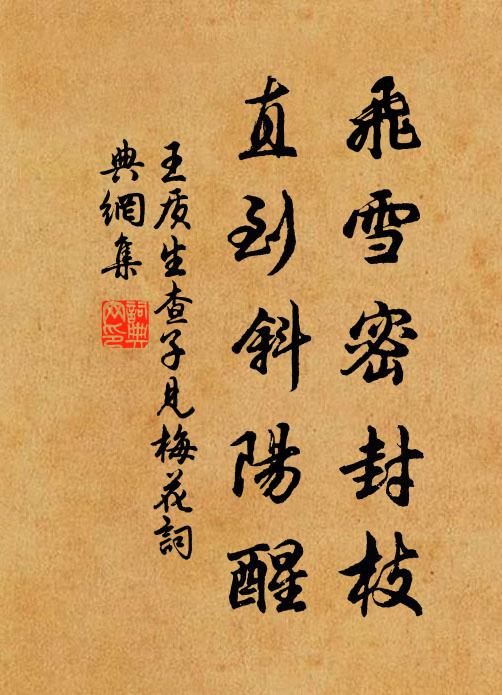 飛雪密封枝
直到斜陽醒
王质生查子見梅花詞
典網集
詞典
网印